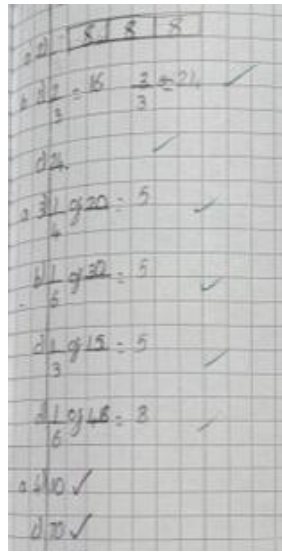 a 2) 8 8 8
b 3) 2/3 = 16 3/3 = 24
c) 24
a 3) 1/4 of 20 = 5
b) 1/6 of 30 = 5
c) 1/3 of 15 = 5
d) 1/6 of 48 = 8
a 4) 10 ✓
c) 70 ✓